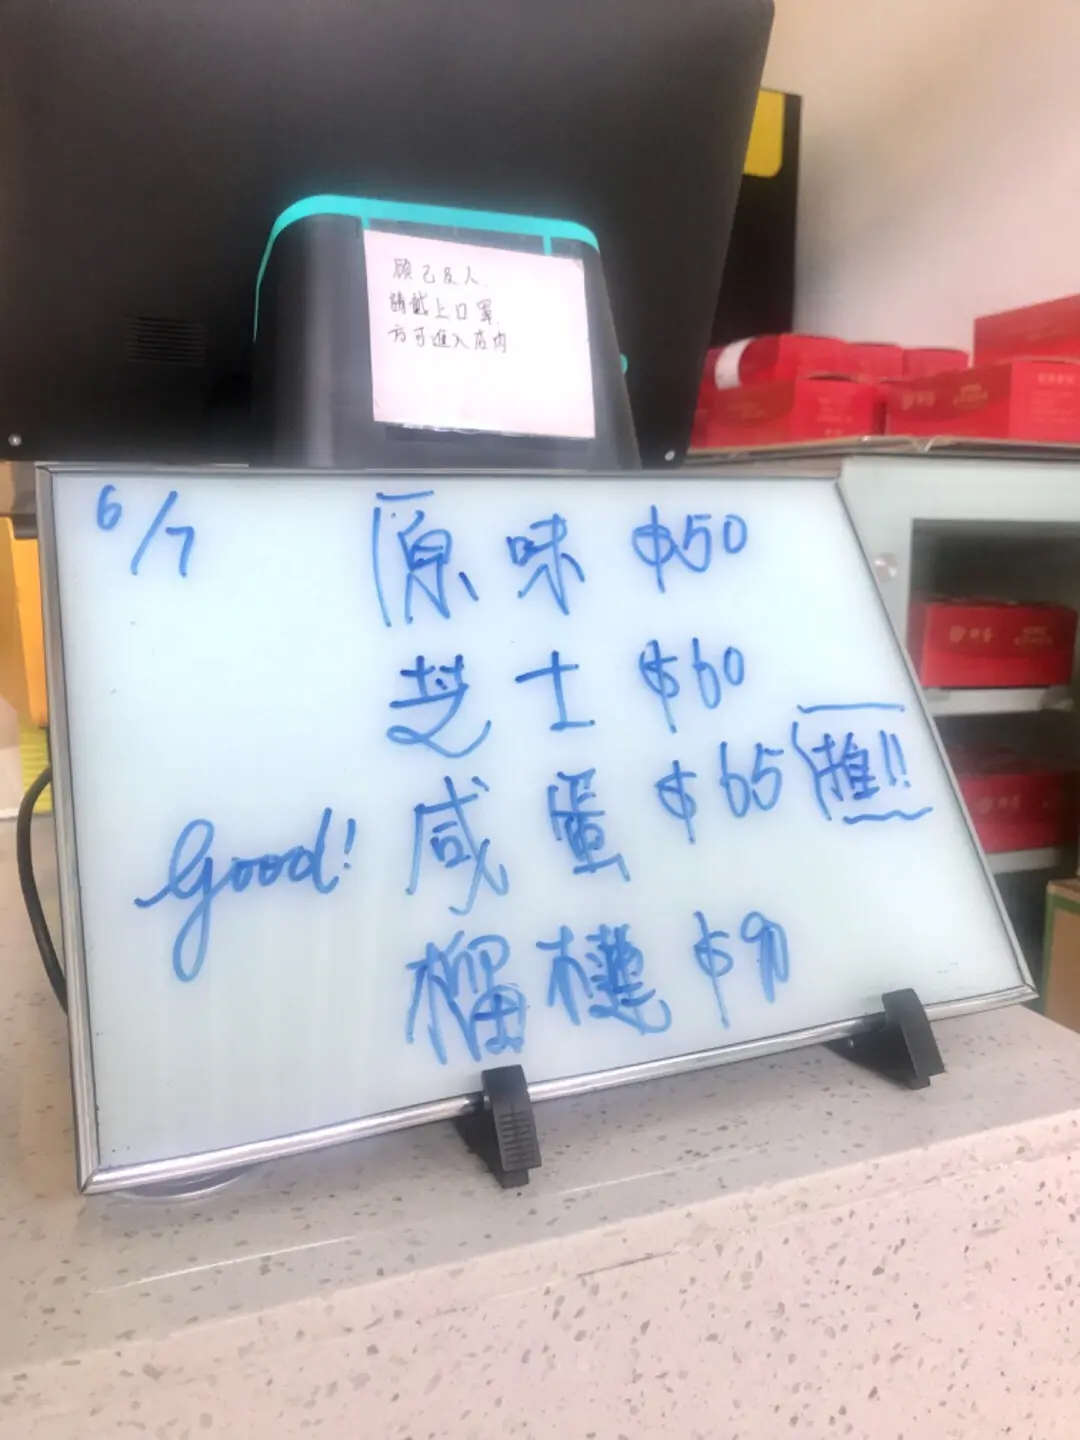 顾己及人,
請戴上口罩,
方可進入店内
6/7
原味 $50
芝士 $60
good! 咸蛋 $65 推!!
榴槤 $90